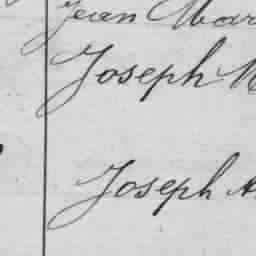 Jean Mar
Joseph
Joseph